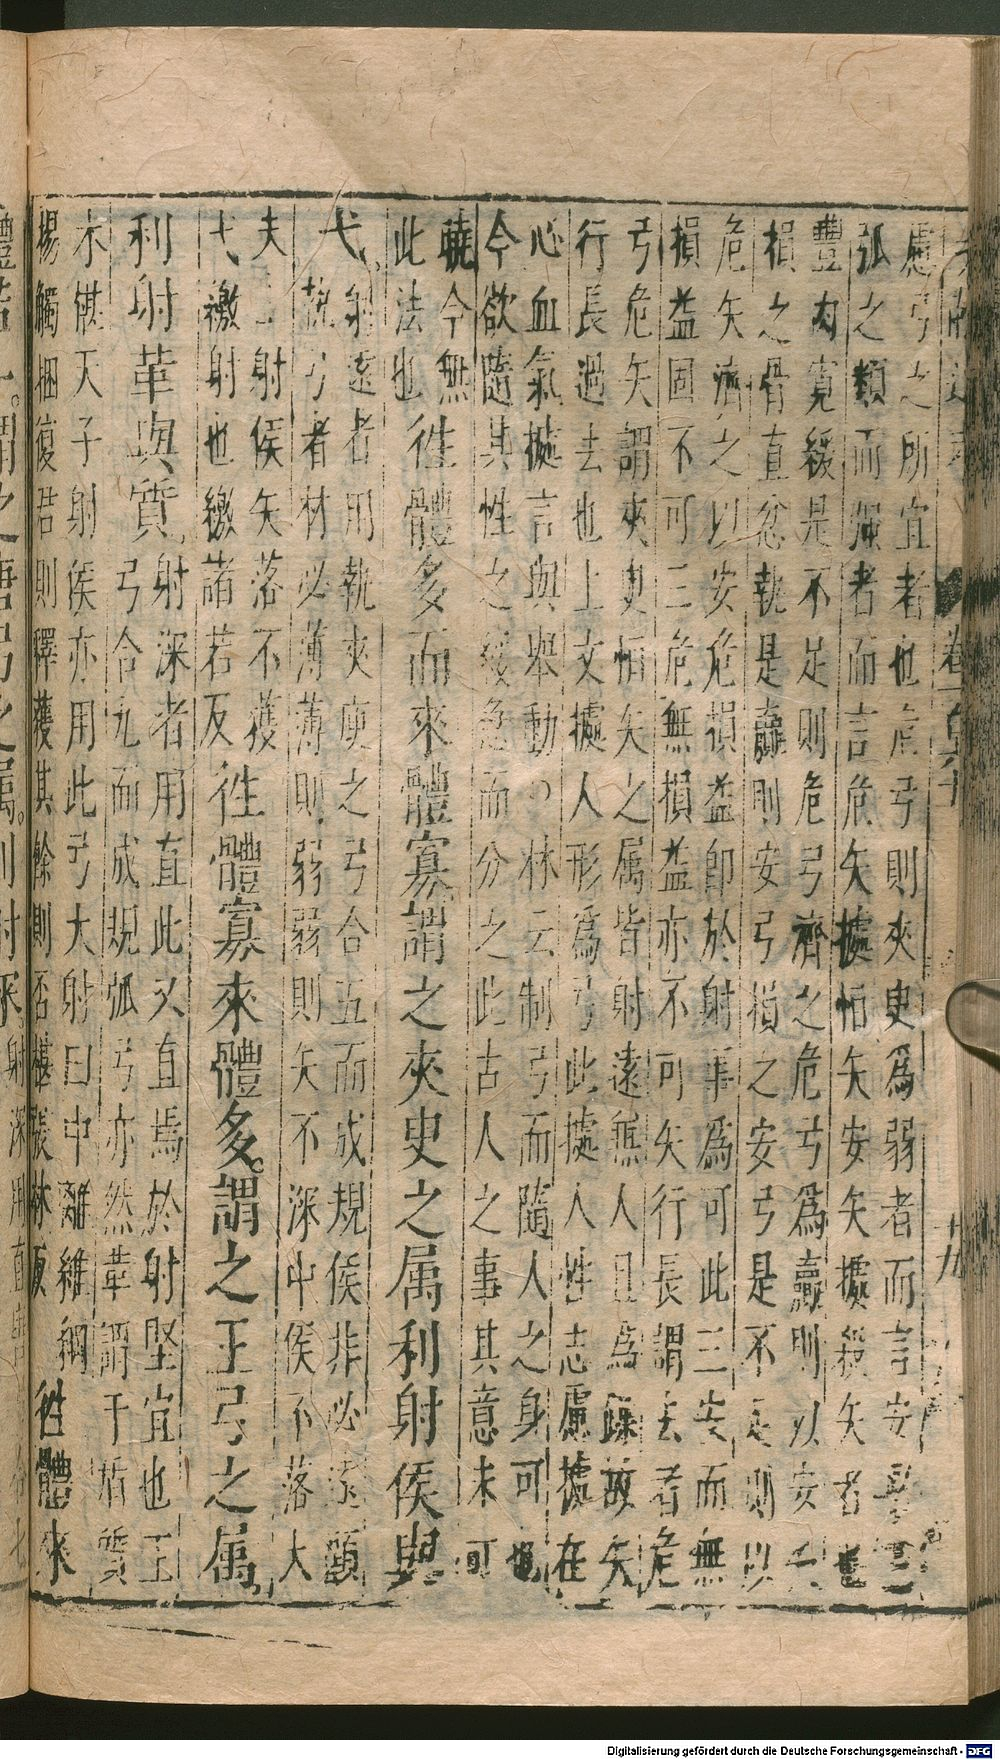 慮弓之所宜者也危弓則夾史爲弱者而言安弓
弧之類而強者而言危矢據恒矢安矢據殺矢者也
豐肉寬緩是不足則危弓濟之危弓爲贏則以安
損之骨直忿執是贏則安弓損之安弓是不足則以
危矢濟之以安危損益即於射事爲可此三安而無
損益固不可三危無損益亦不可矢行長謂去者危
弓危矢謂夾史恒矢之属皆射遠無人且爲疎故矢
行長過去也上文據人形爲弓此據人性志慮據在
心血氣據言與舉動〇林云制弓而隨人之身可也
今欲隨其性之緩急而分之此古人之事其意未可
曉今無
此法也
徃體多而來體寡謂之夾史之属利射侯與
弋射遠者用執夾庾之弓合五而成規侯非必遠顧
執弓者材必薄薄則弱弱則矢不深中侯不落大
夫士射侯矢落不獲
弋繳射也繳諸若反
徃體寡來體多謂之王弓之属
利射革與質
射深者用直此又直焉於射堅宜也王
弓合九而成規弧弓亦然革謂干盾質
木椹天子射侯亦用此弓大射曰中離維綱
揚觸梱復君則釋獲其餘則否椹張林反
徃體來
卷
十九
Digitalisierung gefördert durch die Deutsche Forschungsgemeinschaft - DFG